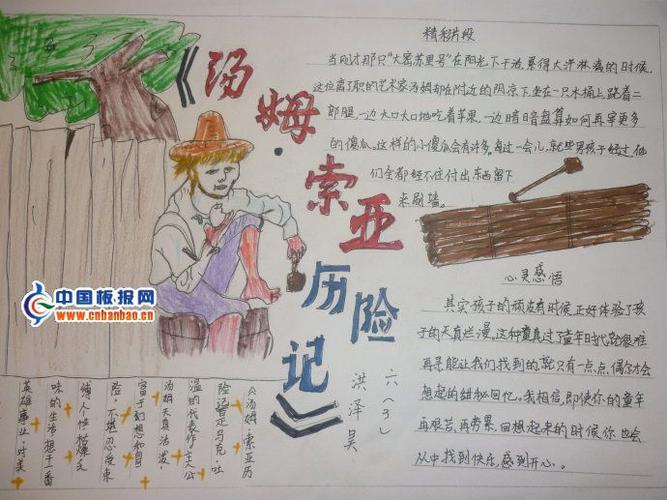 《汤姆·索亚历险记》
六(3)
洪泽昊
精彩片段
当刚才那只“大密苏里号”在阳光下干活,累得大汗淋漓的时候,
这位离了职的艺术家汤姆却在附近的阴凉下坐在一只木桶上,跷着二
郎腿,一边大口大口地吃着苹果,一边暗暗盘算如何再宰更多
的傻瓜。这样的小傻瓜会有许多。每过一会儿,就些男孩子经过,他
们全都经不住付出东西留下
来刷墙。
心灵感悟
其实孩子的顽皮有时候正好体验了孩
子的天真烂漫。这种童真过了童年时代就很难
再寻,能让我们找到的就只有一点点,偶尔才会
想起的甜秘回忆。我相信,即使你的童年
再艰苦,再劳累,回想起来的时候你也会
从中找到快乐,感到开心。
《汤姆·索亚历
险记》是马克·吐
温的代表作,主人公
汤姆天真活泼、
富于幻想和冒
险,不堪忍受束
缚人性、枯燥乏
味的生活,想干一番
英雄事业。
中国板报网
www.cnbanbao.cn